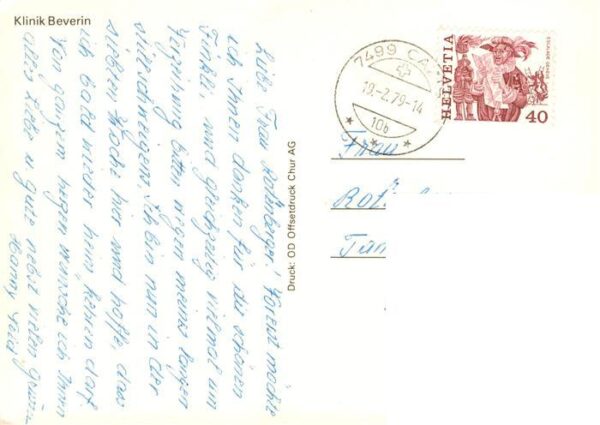 Klinik Beverin
Liebe Frau Rothenberger! Zuerst möchte
ich Ihnen danken für die schönen
Finkli, und gleichzeitig vielmal um
Verzeihung bitten wegen meines langen
stillschweigens. Ich bin nun in der
siebten Woche hier und hoffe, dass
ich bald wieder heim kehren darf.
Von ganzem herzen wünsche ich Ihnen
alles Liebe u. gute nebst vielen grüssen
Hanny
Druck: OD Offsetdruck Chur AG
7499 CA
19.-2.79-14
10b
HELVETIA
ESCALADE GENÈVE
40
Frau
Rot